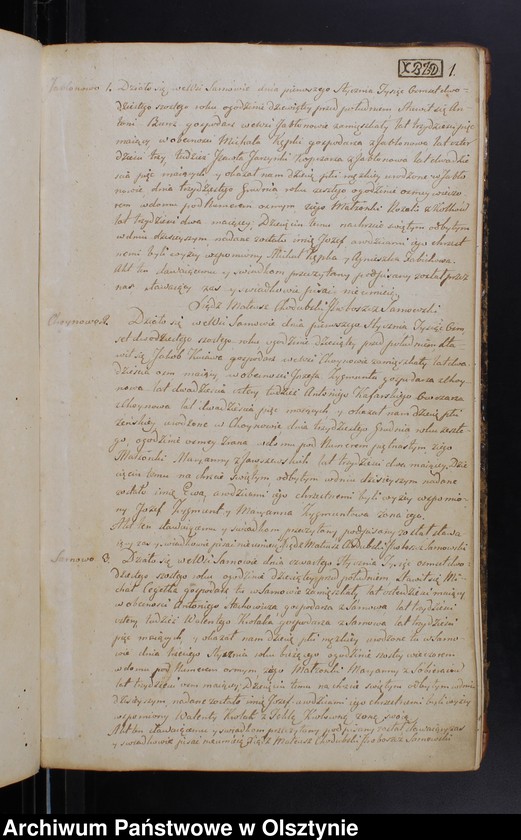 X 2/20 1.
Jabłonowo 1. Działo się we Wsi Sarnowie dnia pierwszego Stycznia Tysiąc Osmset dwu-
dziestego szostego roku ogodzinie dziewiątey przed południem Stawił się An-
toni gospodarz we wsi Jabłonowie zamięszkały lat trzydzieści pięć
maiący w obecnosci Michała Kępki gospodarza z Jabłonowa lat czter
dzieści trzy tudzież Karola z Jabłonowa lat dwadzie
ścia pięć maiących y okazał nam dziecię płci męzkiey urodzone w Jabło
nowie dnia trzydziestego Grudnia roku zeszłego ogodzinie osmey wieczo
rem w domu pod Numerem osmym z iego Małżonki Rozalii z
lat trzydzieści dwa maiącey. Dziecięciu temu na chrzcie świętym odbytym
w dniu dzisieyszym nadane zostało imię Jozef a rodzicami iego chrzest
nemi byli wyżey wspomniony Michał Kępka y Agnieszka
Akt ten stawaiącemu y swiadkom przeczytany podpisany został przez
nas stawaiący zas y swiadkowie pisać nieumieią
Xiądz Mateusz Chodubski Proboszcz Sarnowski
Choynowo 2. Działo się we Wsi Sarnowie dnia pierwszego Stycznia Tysiąc Osm
set dwudziestego szostego roku ogodzinie dziesiątey przed południem sta
wił się Jakob gospodarz we wsi Choynowie zamięszkały lat dwa
dzieścia osm maiący w obecnosci Jozefa Zygmunta gospodarza z Choy
nowa lat dwadzieścia cztery tudzież Antoniego Kafarskiego Owczarza
z Choynowa lat dwadzieścia pięć maiących y okazał nam dziecię płci
żeńskiey urodzone w Choynowie dnia trzydziestego Grudnia roku zeszłe-
go, ogodzinie osmey zrana w domu pod Numerem piętnastym z iego
Małżonki Maryanny z lat trzydzieści dwa maiącey, Dzie
cięciu temu na chrzcie Swiętym odbytym w dniu dzisieyszym nadane
zostało imię Ewa, a rodzicami iego chrzestnemi byli wyżey wspomnio
ny Jozef Zygmunt y Maryanna Zygmuntowa żona iego.
Akt ten stawaiącemu y swiadkom przeczytany podpisany został stawa
iący zas y swiadkowie pisać nieumieią Xiądz Mateusz Chodubski Proboszcz Sarnowski
Sarnowo 3. Działo się we Wsi Sarnowie dnia czwartego Stycznia Tysiąc osmset dwu
dziestego szostego roku ogodzinie dziesiątey przed południem Stawił się Mi
chał Cegełka gospodarz tu w Sarnowie zamięszkały lat czterdzieści maiący
w obecnosci Antoniego gospodarza z Sarnowa lat trzydzieści
cztery tudzież Walentego Kołaka gospodarza z Sarnowa lat trzydzieści
pięć maiących y okazał nam dziecię płci męzkiey urodzone tu w Sarno
wie dnia trzeciego Stycznia roku bieżącego ogodzinie szostey wieczorem
w domu pod Numerem osmym z iego Małżonki Maryanny z
lat trzydzieści maiącey, Dziecięciu temu na chrzcie swiętym odbytym w dniu
dzisieyszym, nadane zostało imię Jozef a rodzicami iego chrzestnemi byli wyżey
wspomniony Walenty Kołak z Teklą żoną swoią
Akt ten stawaiącemu y swiadkom przeczytany podpisany został stawaiący zas
y swiadkowie pisać nieumieią Xiądz Mateusz Chodubski Proboszcz Sarnowski
Archiwum Państwowe w Olsztynie